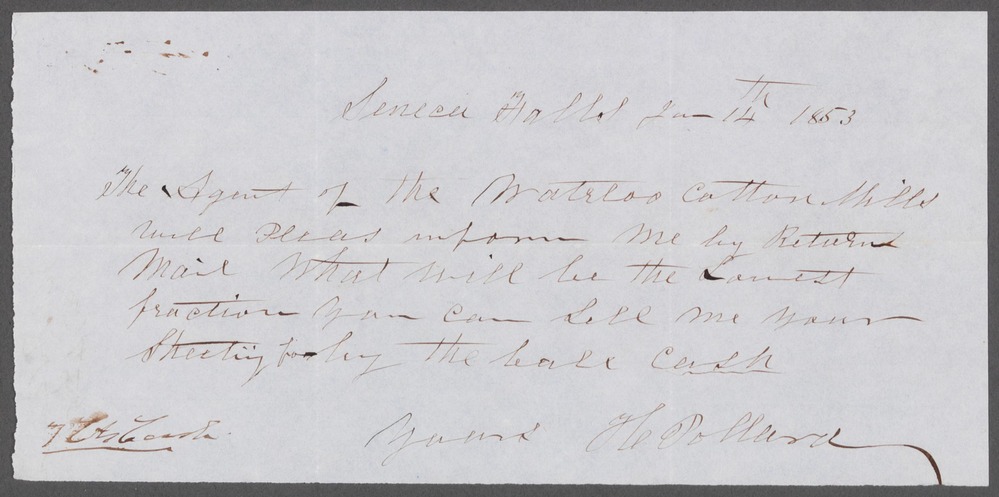 Seneca Falls Jan 14th 1853
The Agent of the Waterloo Cotton Mills
will Pleas inform me by Return
Mail What Will be the Lowest
fraction You Can Sell me your
Sheeting for by the bale cash
Yours H C Pollard
7 Cts Cash